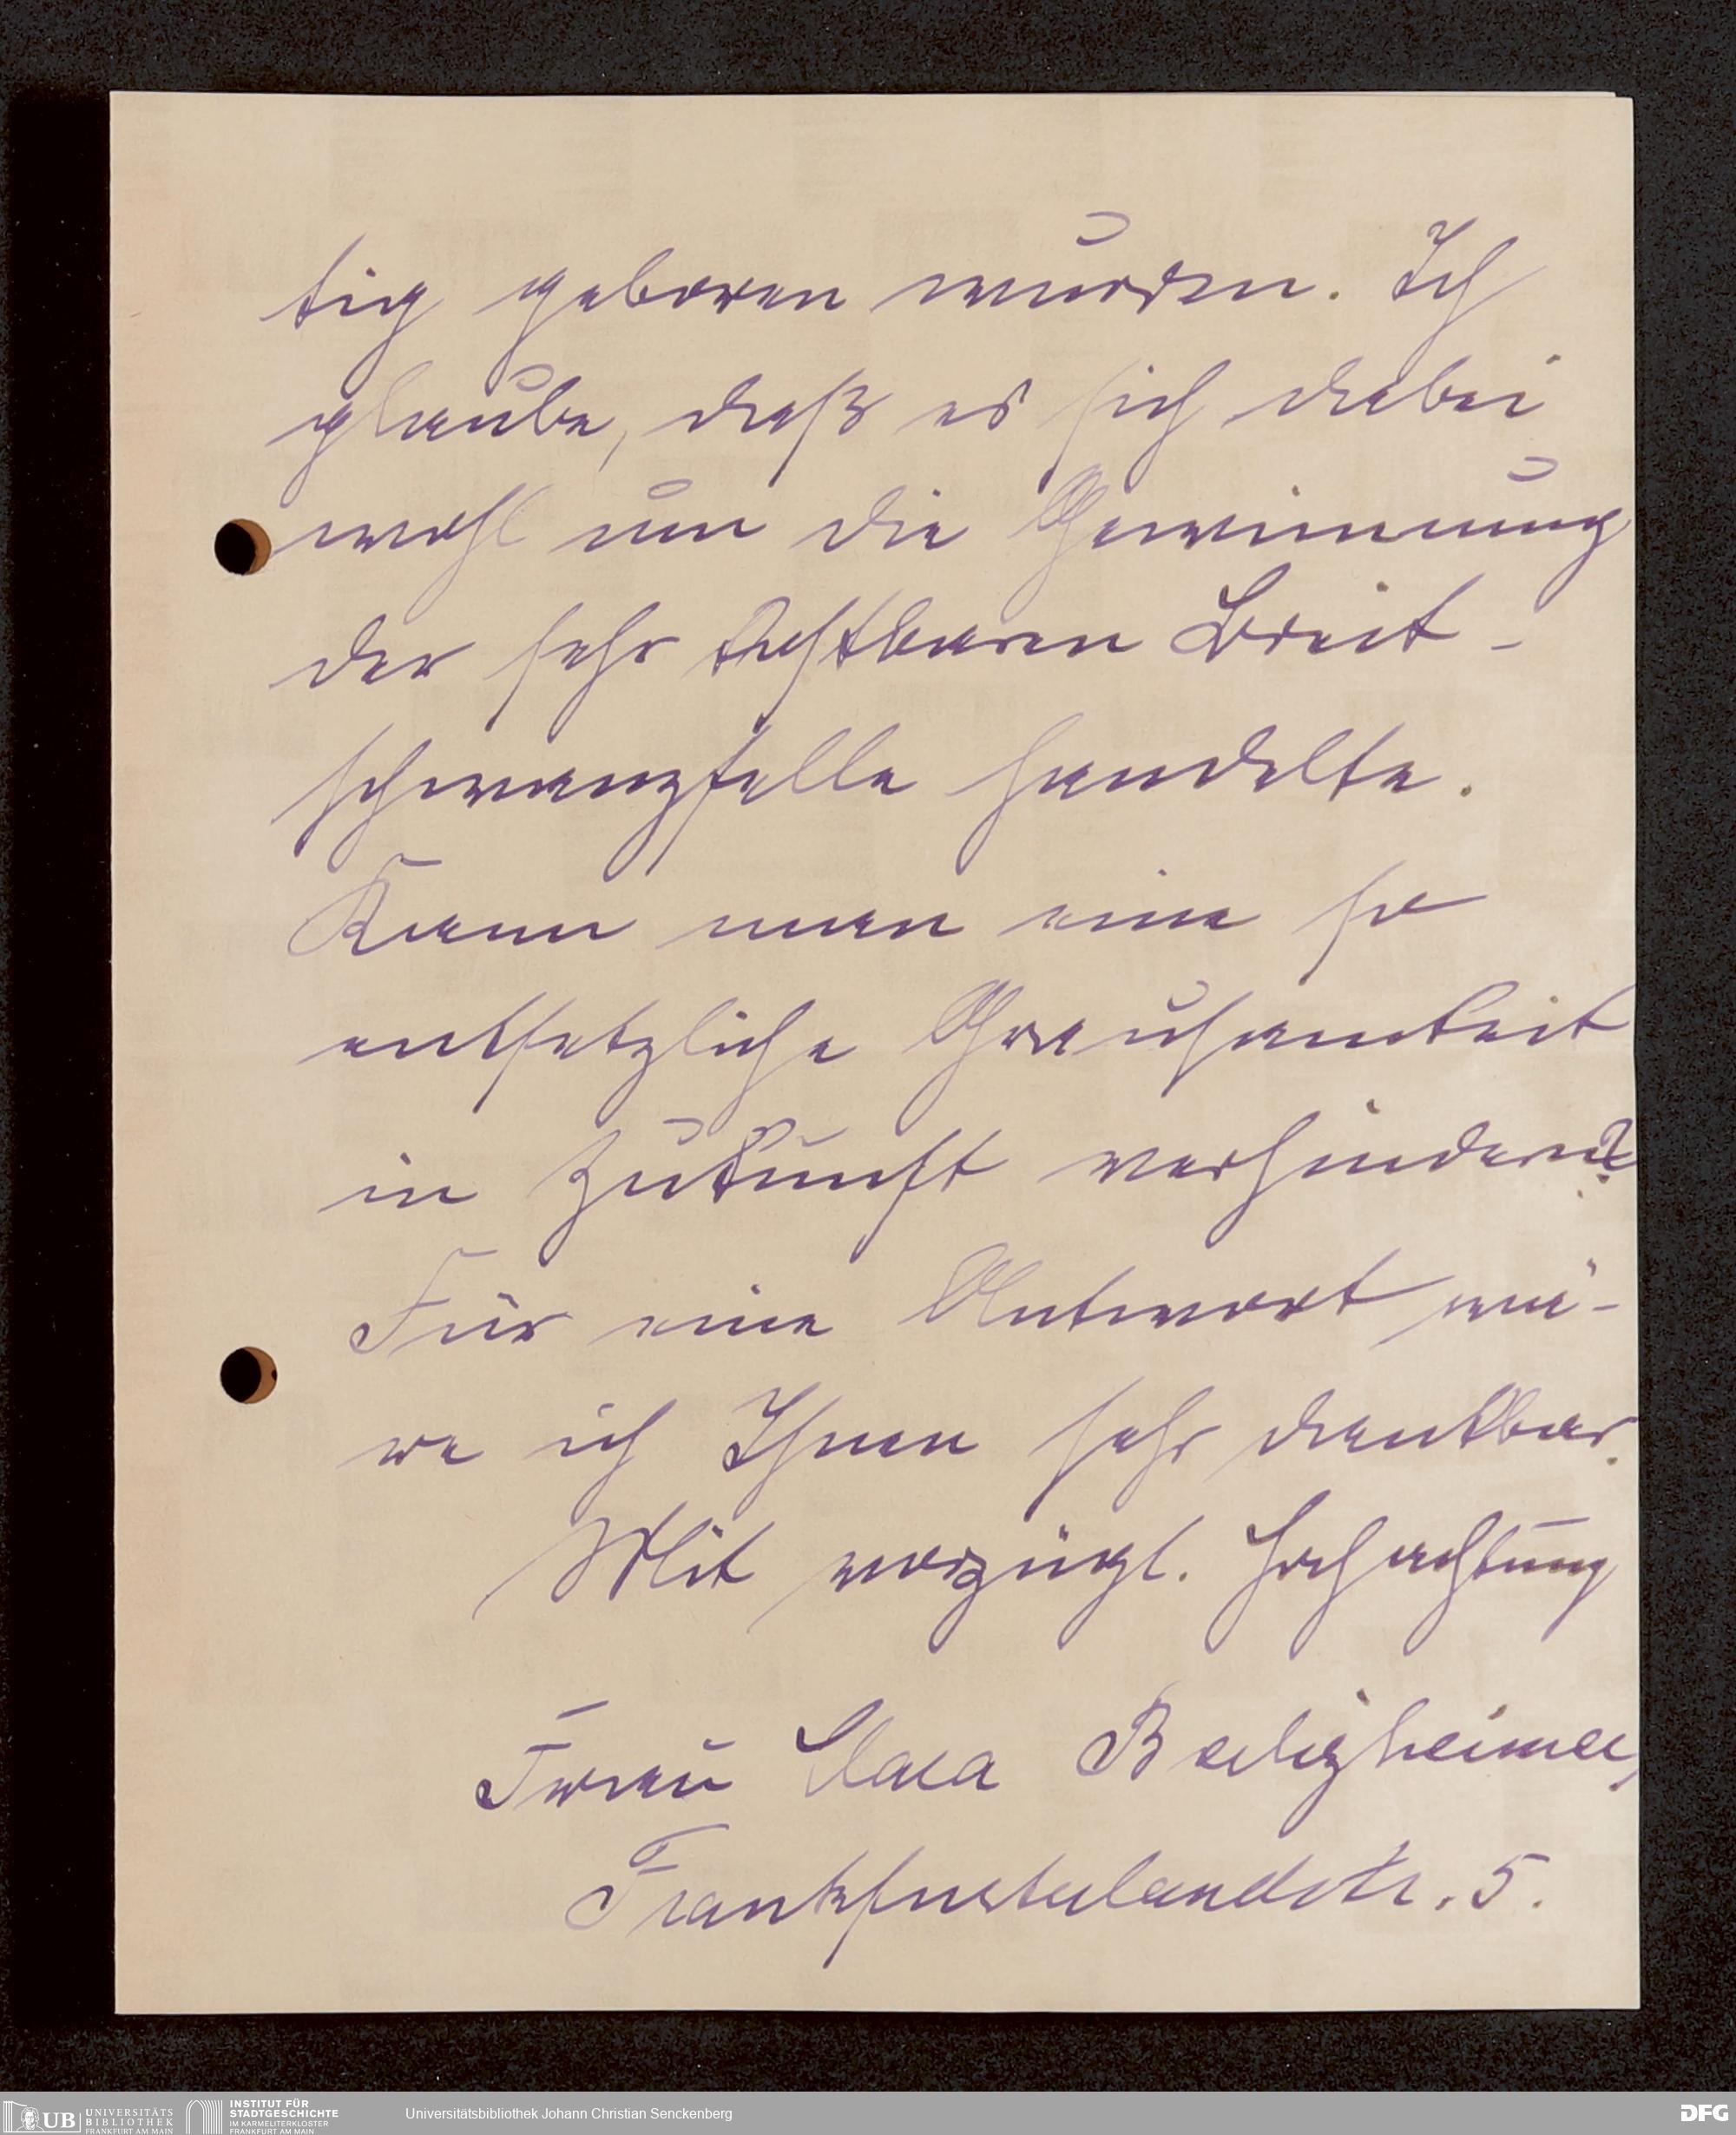 tig geboren wurden. Ich
glaube, daß es sich dabei
wohl um die Gewinnung
der sehr kostbaren Breit-
schwanzfelle handelte.
Kann man eine so
entsetzliche Grausamkeit
in Zukunft verhindern?
Für eine Antwort wä-
re ich Ihnen sehr dankbar.
Mit vorzügl. Hochachtung
Frau Clara
Frankfurterlandstr. 5.
UB UNIVERSITÄTS BIBLIOTHEK FRANKFURT AM MAIN
INSTITUT FÜR STADTGESCHICHTE IM KARMELITERKLOSTER FRANKFURT AM MAIN
Universitätsbibliothek Johann Christian Senckenberg
DFG